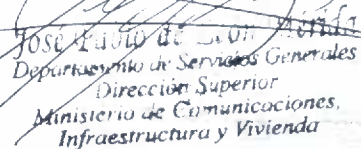 José Pablo de León Mérida
Departamento de Servicios Generales
Dirección Superior
Ministerio de Comunicaciones,
Infraestructura y Vivienda